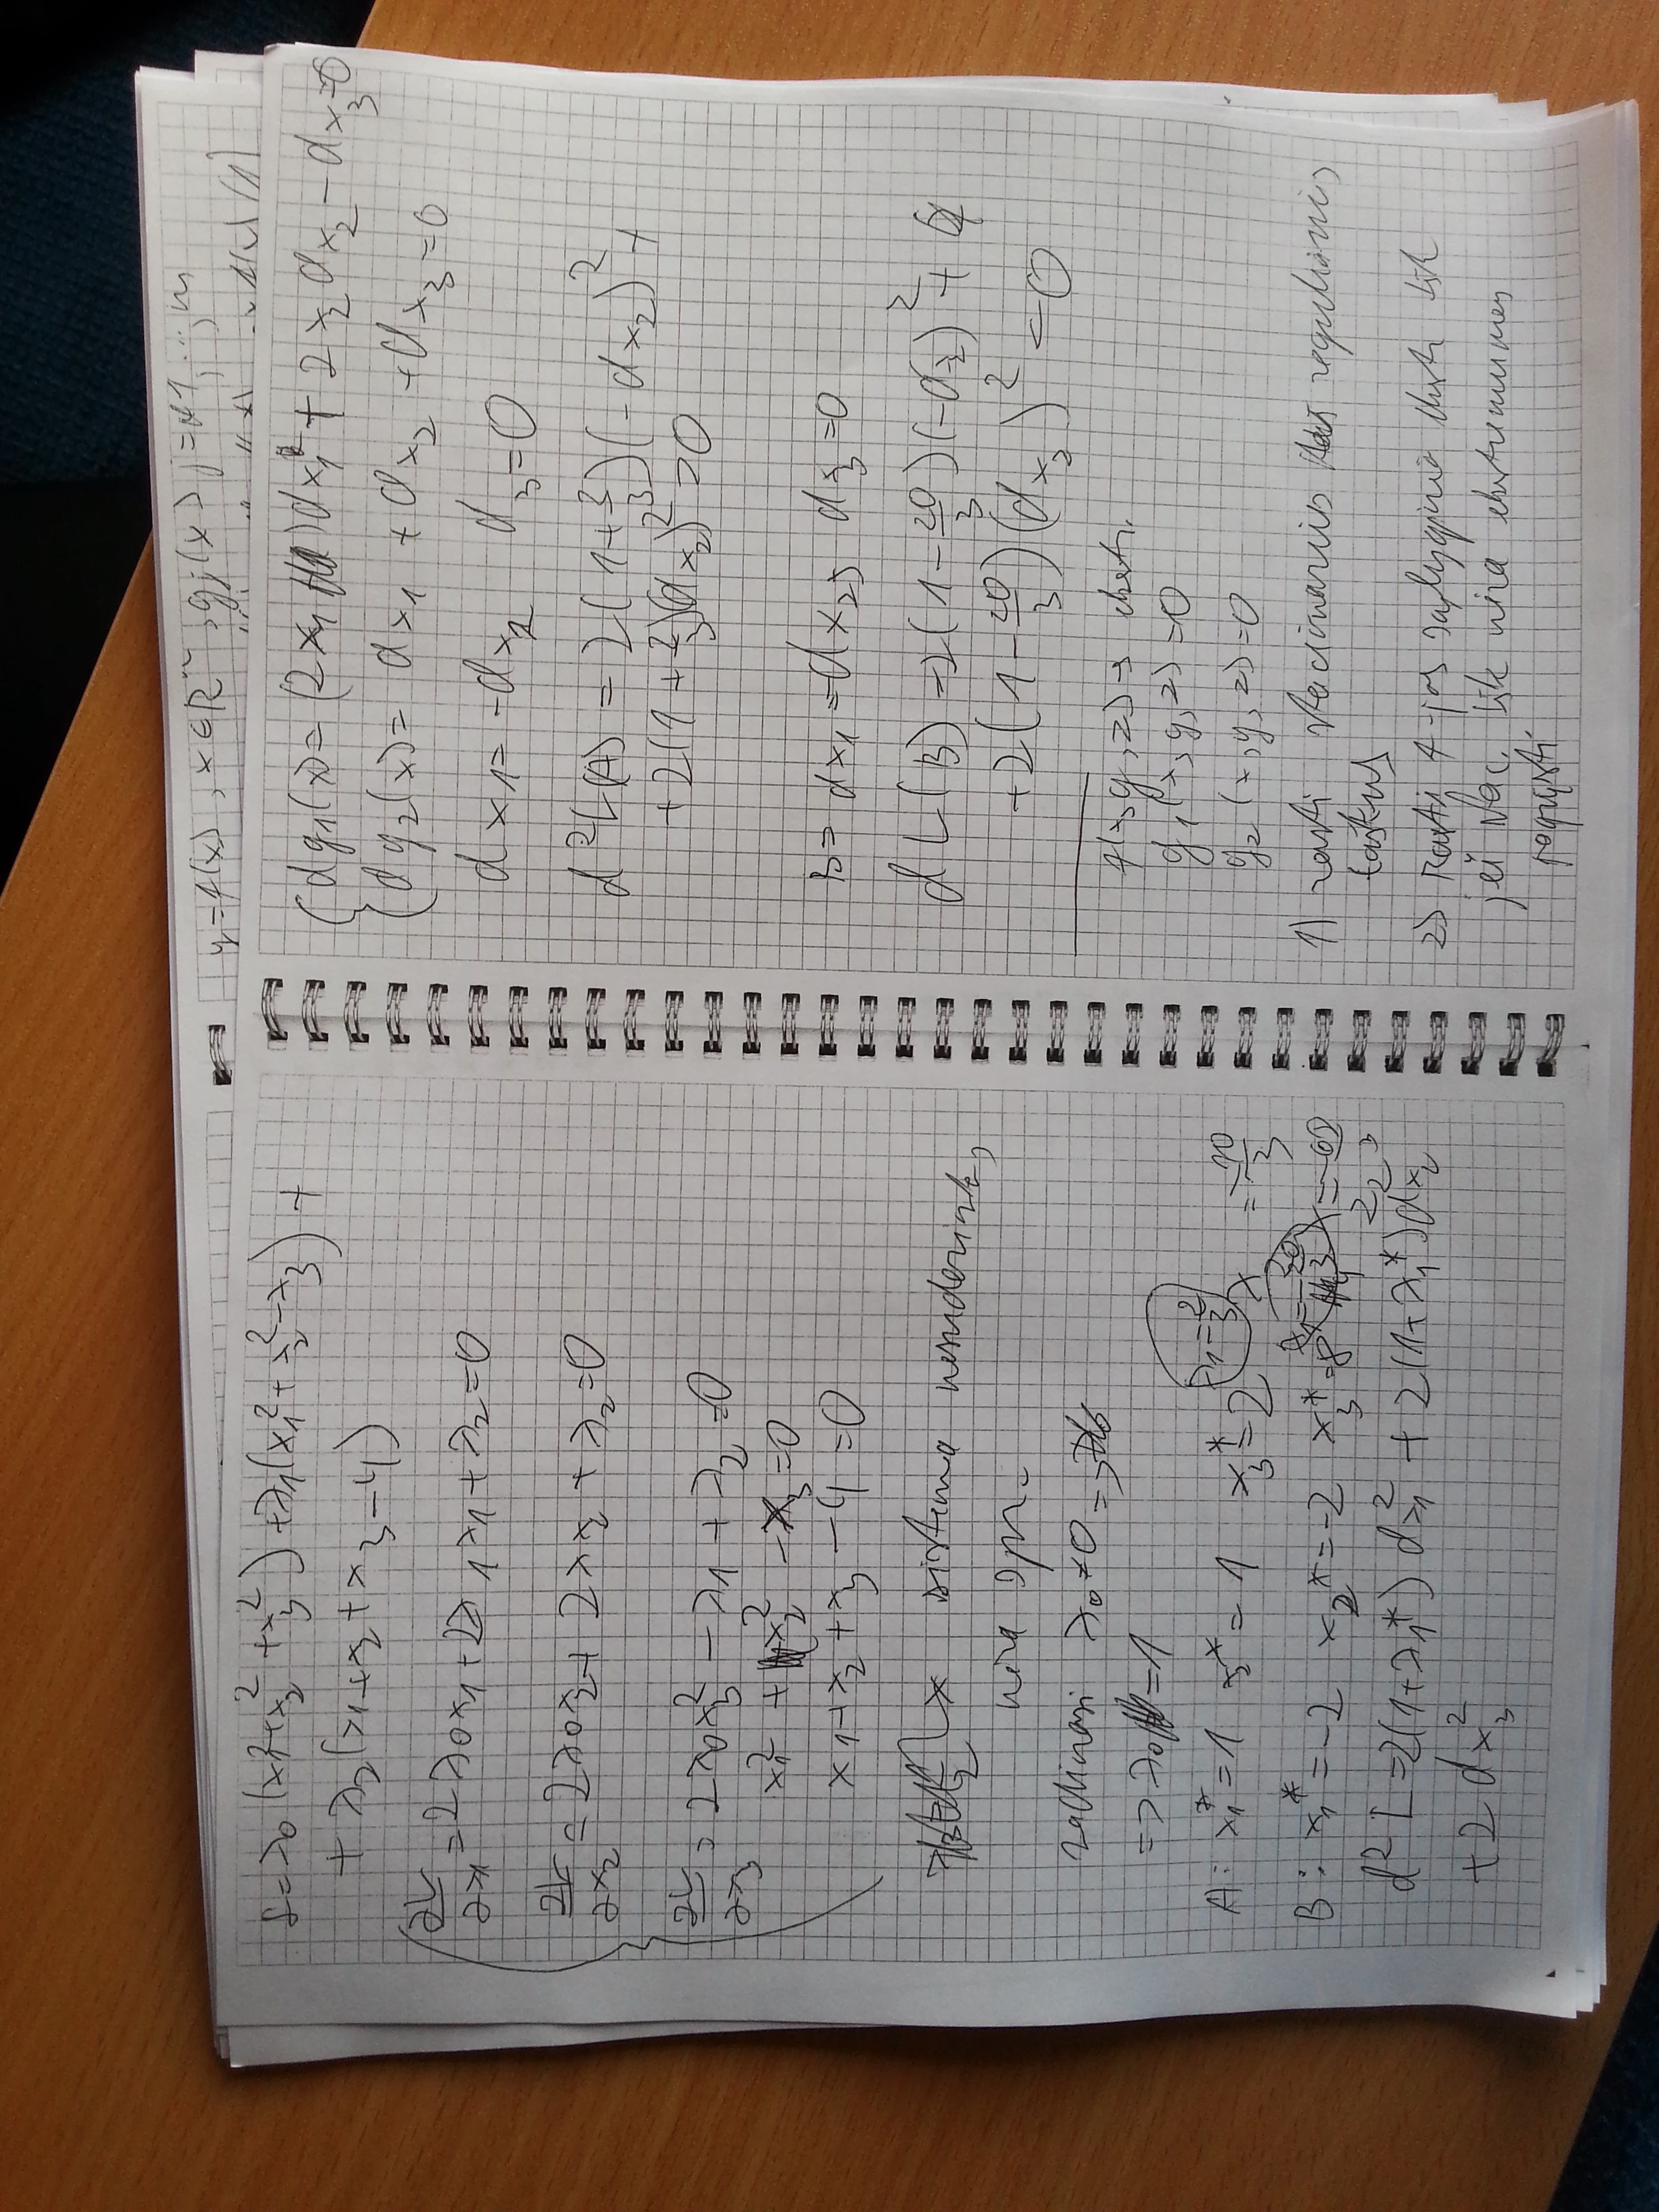 L = λ0 (x1² + x2² + x3²) + λ1(x1² + x2² - x3) +
+ λ2(x1 + x2 + x3 - 4)
∂L/∂x1 = 2λ0x1 + 2λ1x1 + λ2 = 0
∂L/∂x2 = 2λ0x2 + 2λx2 + λ2 = 0
∂L/∂x3 = 2λ0x3² - λ1 + λ2 = 0
x1² + x2² - x3 = 0
x1 + x2 + x3 - 4 = 0
sistema nesuderinta,
nėra spr.
λ0 ≠ 0 =>
=> λ0 = 1
A: x1* = 1 x2* = 1 x3* = 2 λ1 = 2/3 λ = -10/3
B: x1* = -2 x2* = -2 x3* = 8 λ1 = -20/3
d²L = 2(1+λ1*) dx1² + 2(1+λ1*) dx2²
+ 2 dx3²
y = f(x), x ∈ Rⁿ, gj(x) j = 1, ..., m
dg1(x) = (2x1) dx1 + 2x2 dx2 - dx3 = 0
dg2(x) = dx1 + dx2 + dx3 = 0
dx1 = -dx2 d3 = 0
d²L(A) = 2(1 + 2/3)(-dx2)² +
+ 2(1 + 2/3)(dx2)² > 0
B = dx1 = dx2, dx3 = 0
dL(B) = 2(1 - 20/3)(-dx2)² +
+ 2(1 - 20/3)(dx2)² = 0
f(x, y, z) → ekstr.
g1(x, y, z) = 0
g2(x, y, z) = 0
1) rasti stacionarius regulianis
taškus
2) Rasti f-jos sąlyginio ekstr. tšk
jei stac. tšk nėra ekstremumas
pagrįsti